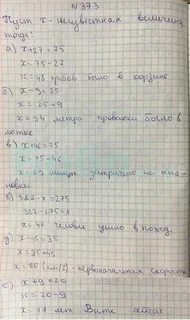 N 373
Пусть x - неизвестная величина
тогда:
а) x+27=75
x = 75-27
x = 48 грибов было в корзине
б) x-9=25
x = 25+9
x = 34 метра проволоки было в
мотке
в) x+46=75
x = 75-46
x = 29 минут утрачено на оста-
новки
г) 322-x=275
322-275=x
x = 47 человек ушло в поход.
д) x-45=35
x = 35+45
x = 80 (км/ч) - первоначальная скорость
е) x+9=20
x = 20-9
x = 11 лет Вите сейчас